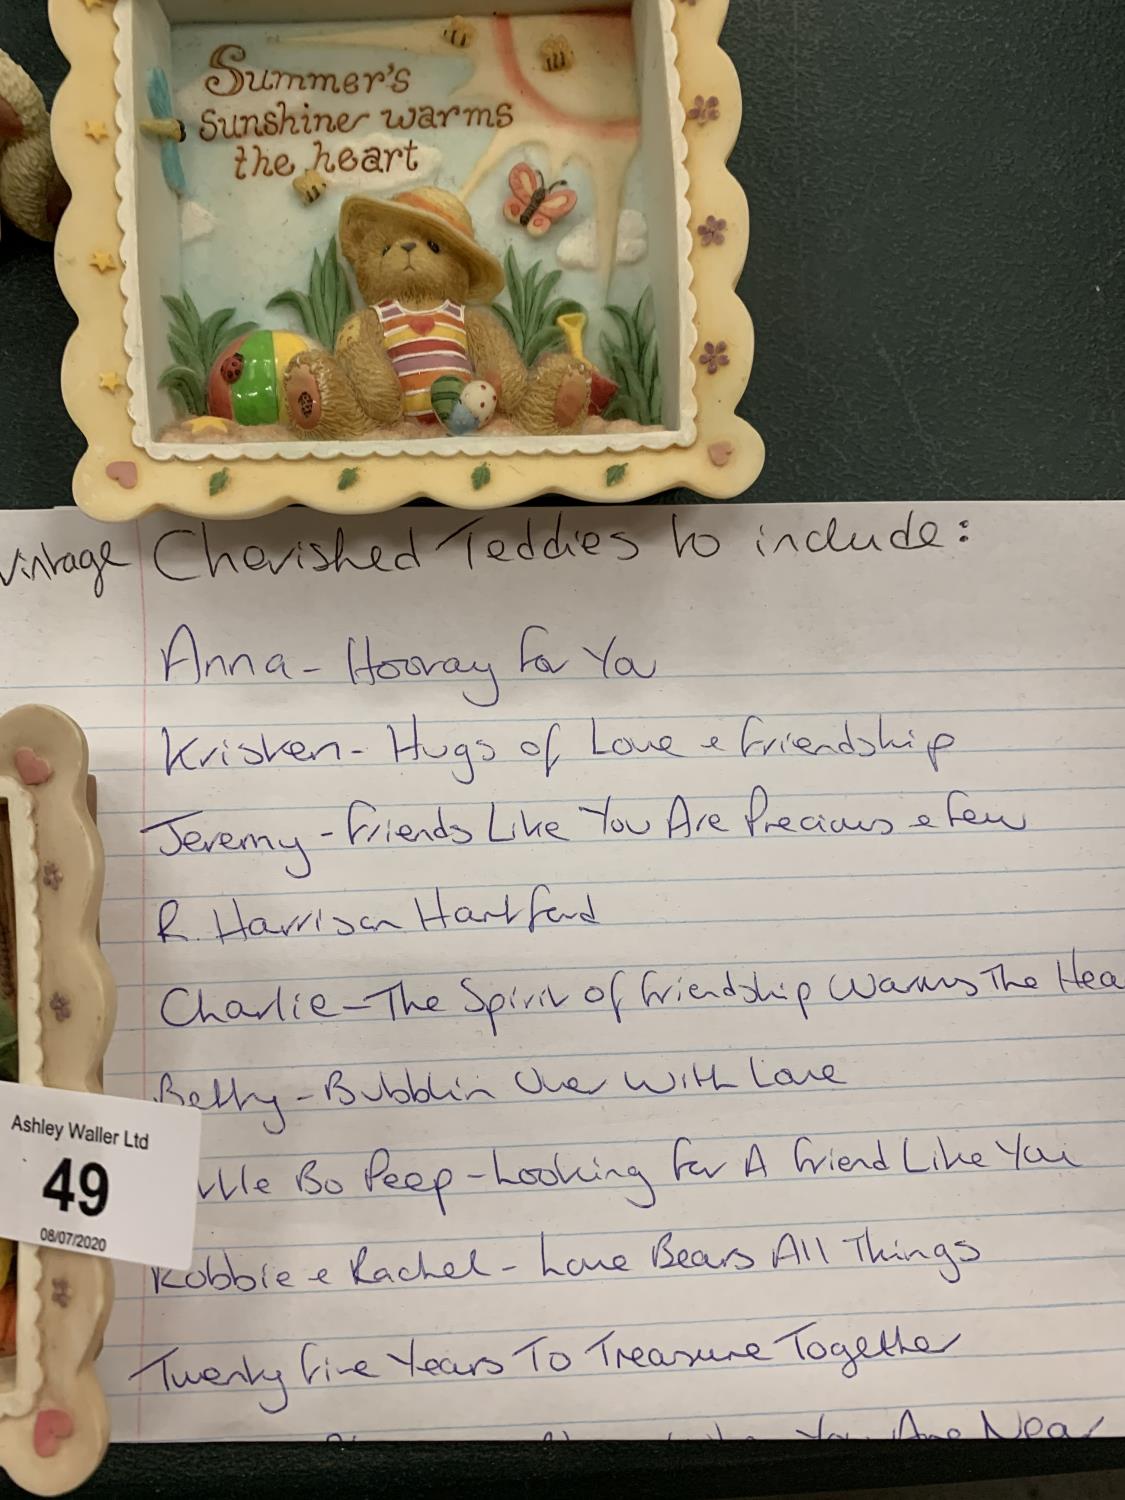 Summer's
sunshine warms
the heart
vintage Cherished Teddies to include:
Anna - Hooray For You
Kristen - Hugs of Love & Friendship
Jeremy - Friends Like You Are Precious & Few
R. Harrison Hartford
Charlie - The Spirit of Friendship Warms The Hea
Betty - Bubblin Over With Love
ttle Bo Peep - Looking For A Friend Like You
Robbie & Rachel - Love Bears All Things
Twenty Five Years To Treasure Together
You Are Near
Ashley Waller Ltd
49
08/07/2020